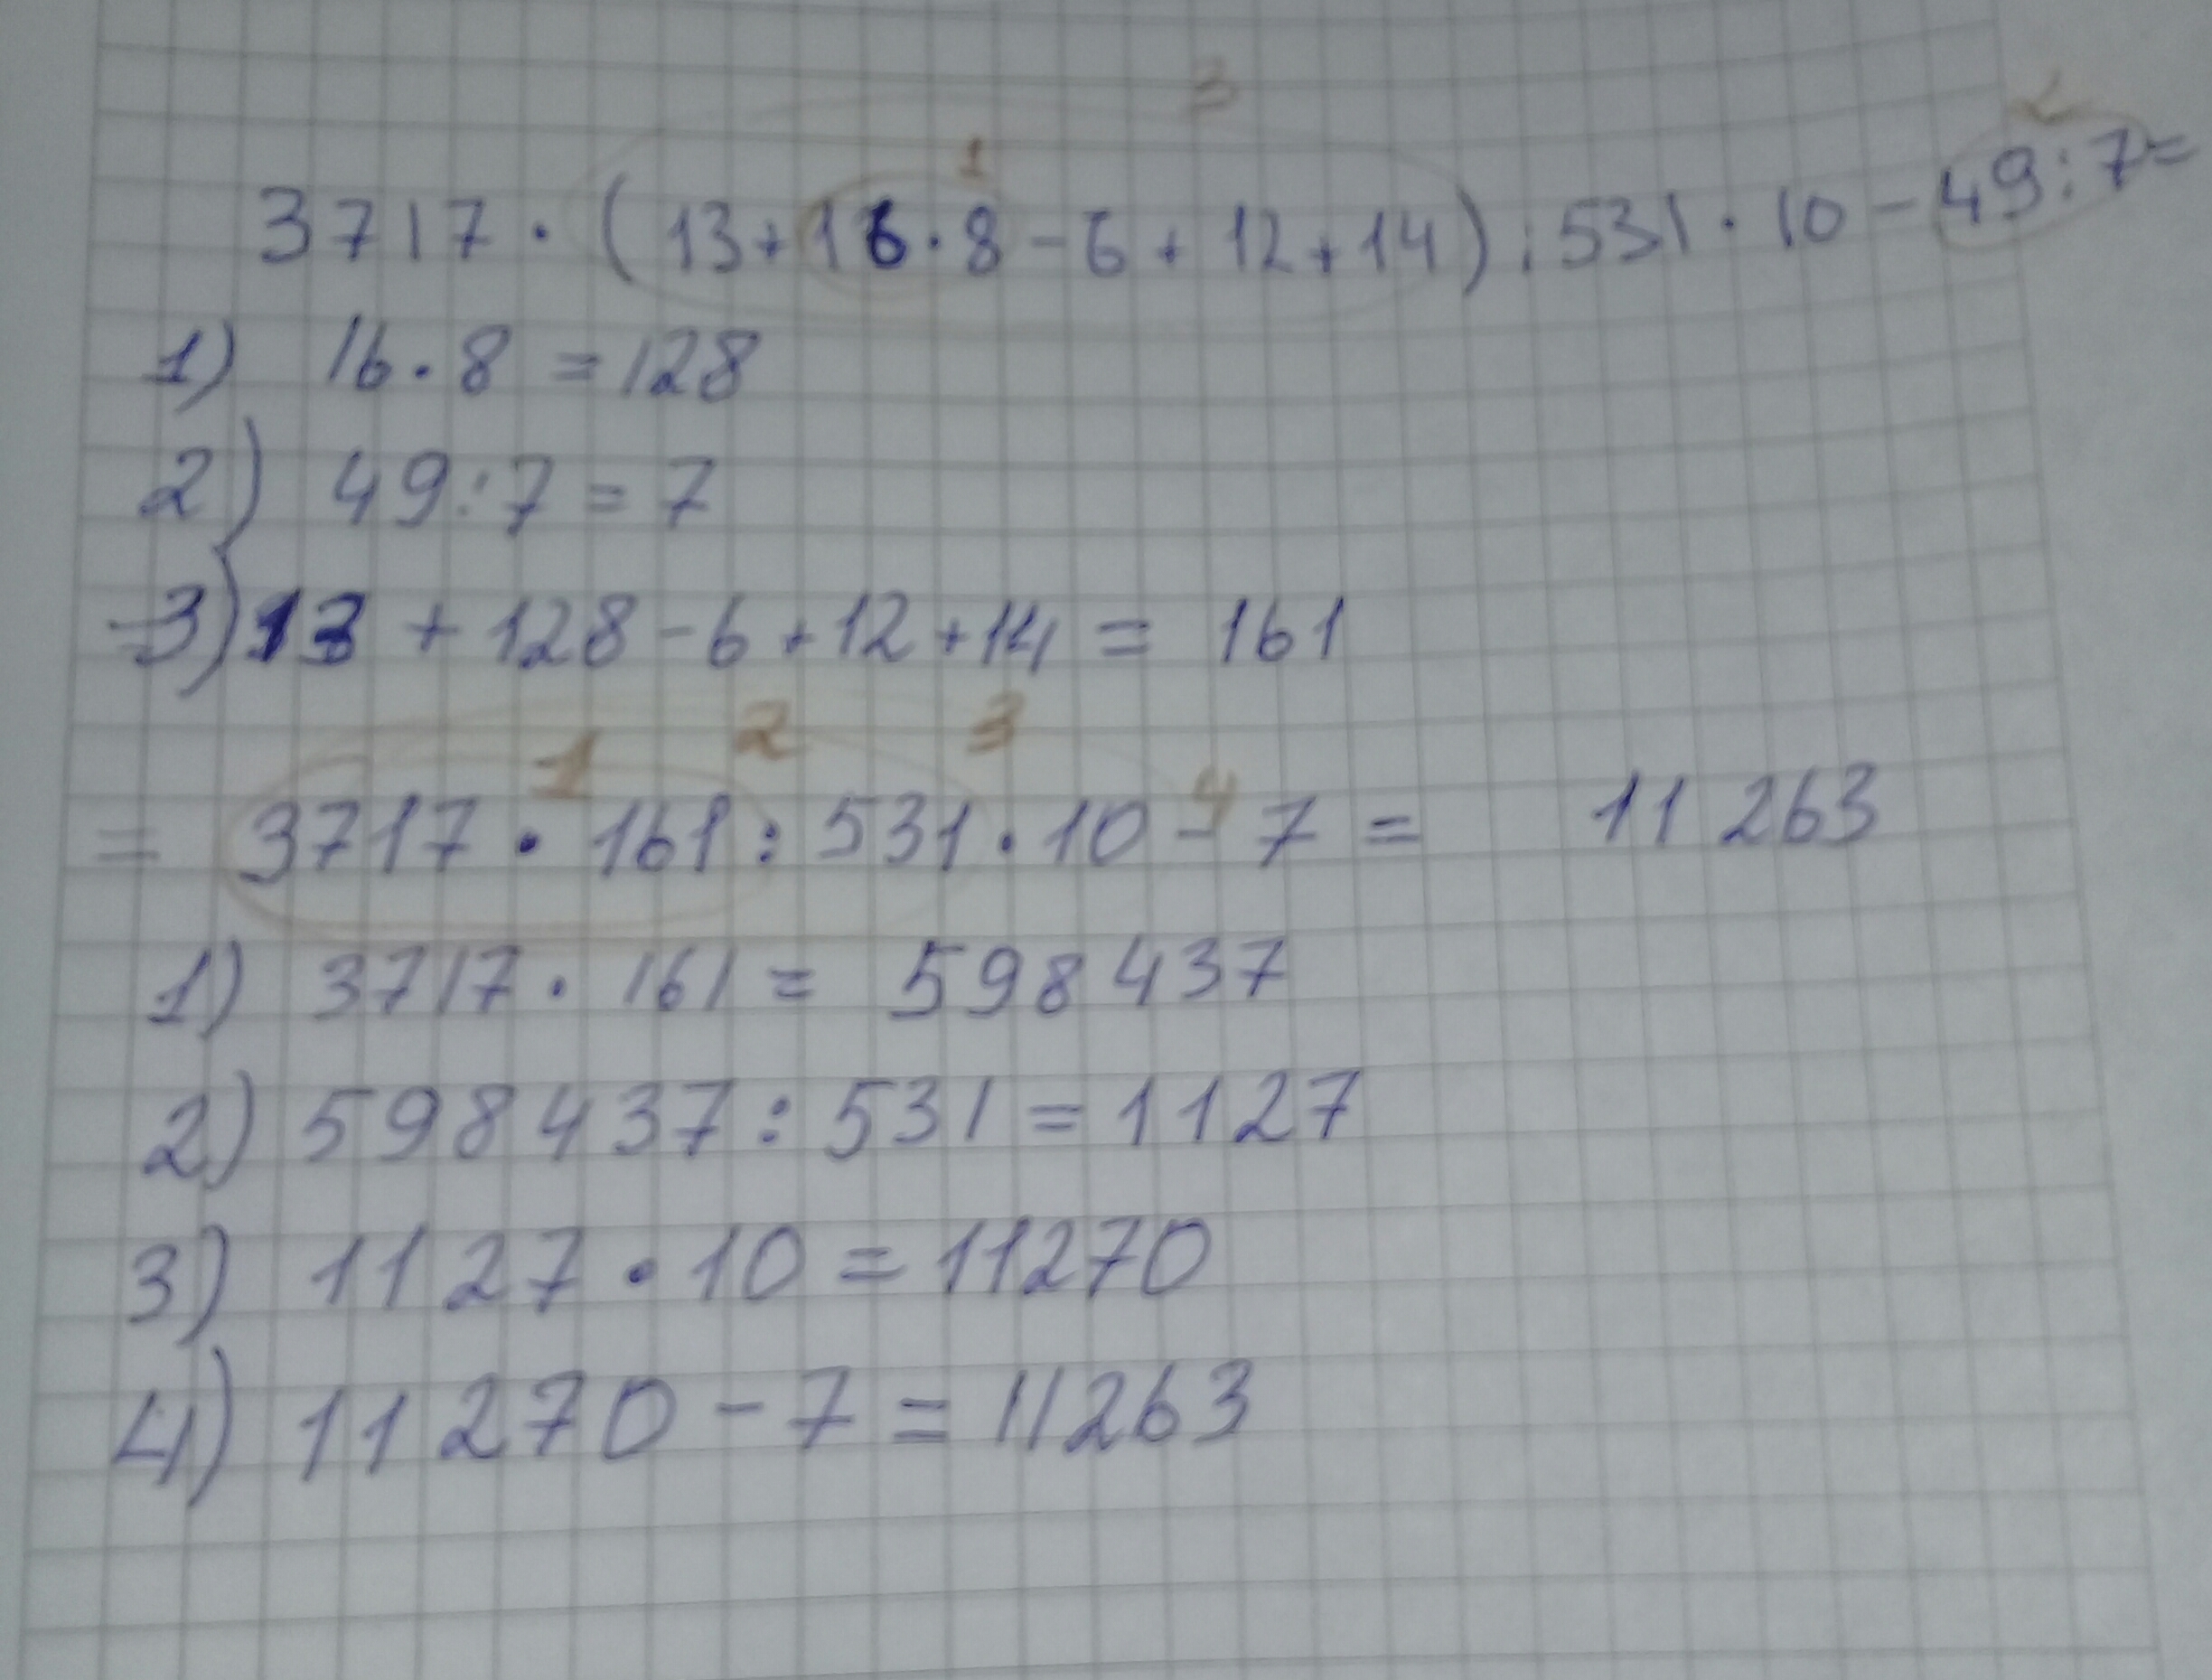 3
1
2
3717 · (13+16·8-6+12+14):531·10-49:7=
1) 16·8=128
2) 49:7=7
3) 13+128-6+12+14=161
1 2 3 4
= 3717·161:531·10-7= 11263
1) 3717·161=598437
2) 598437:531=1127
3) 1127·10=11270
4) 11270-7=11263